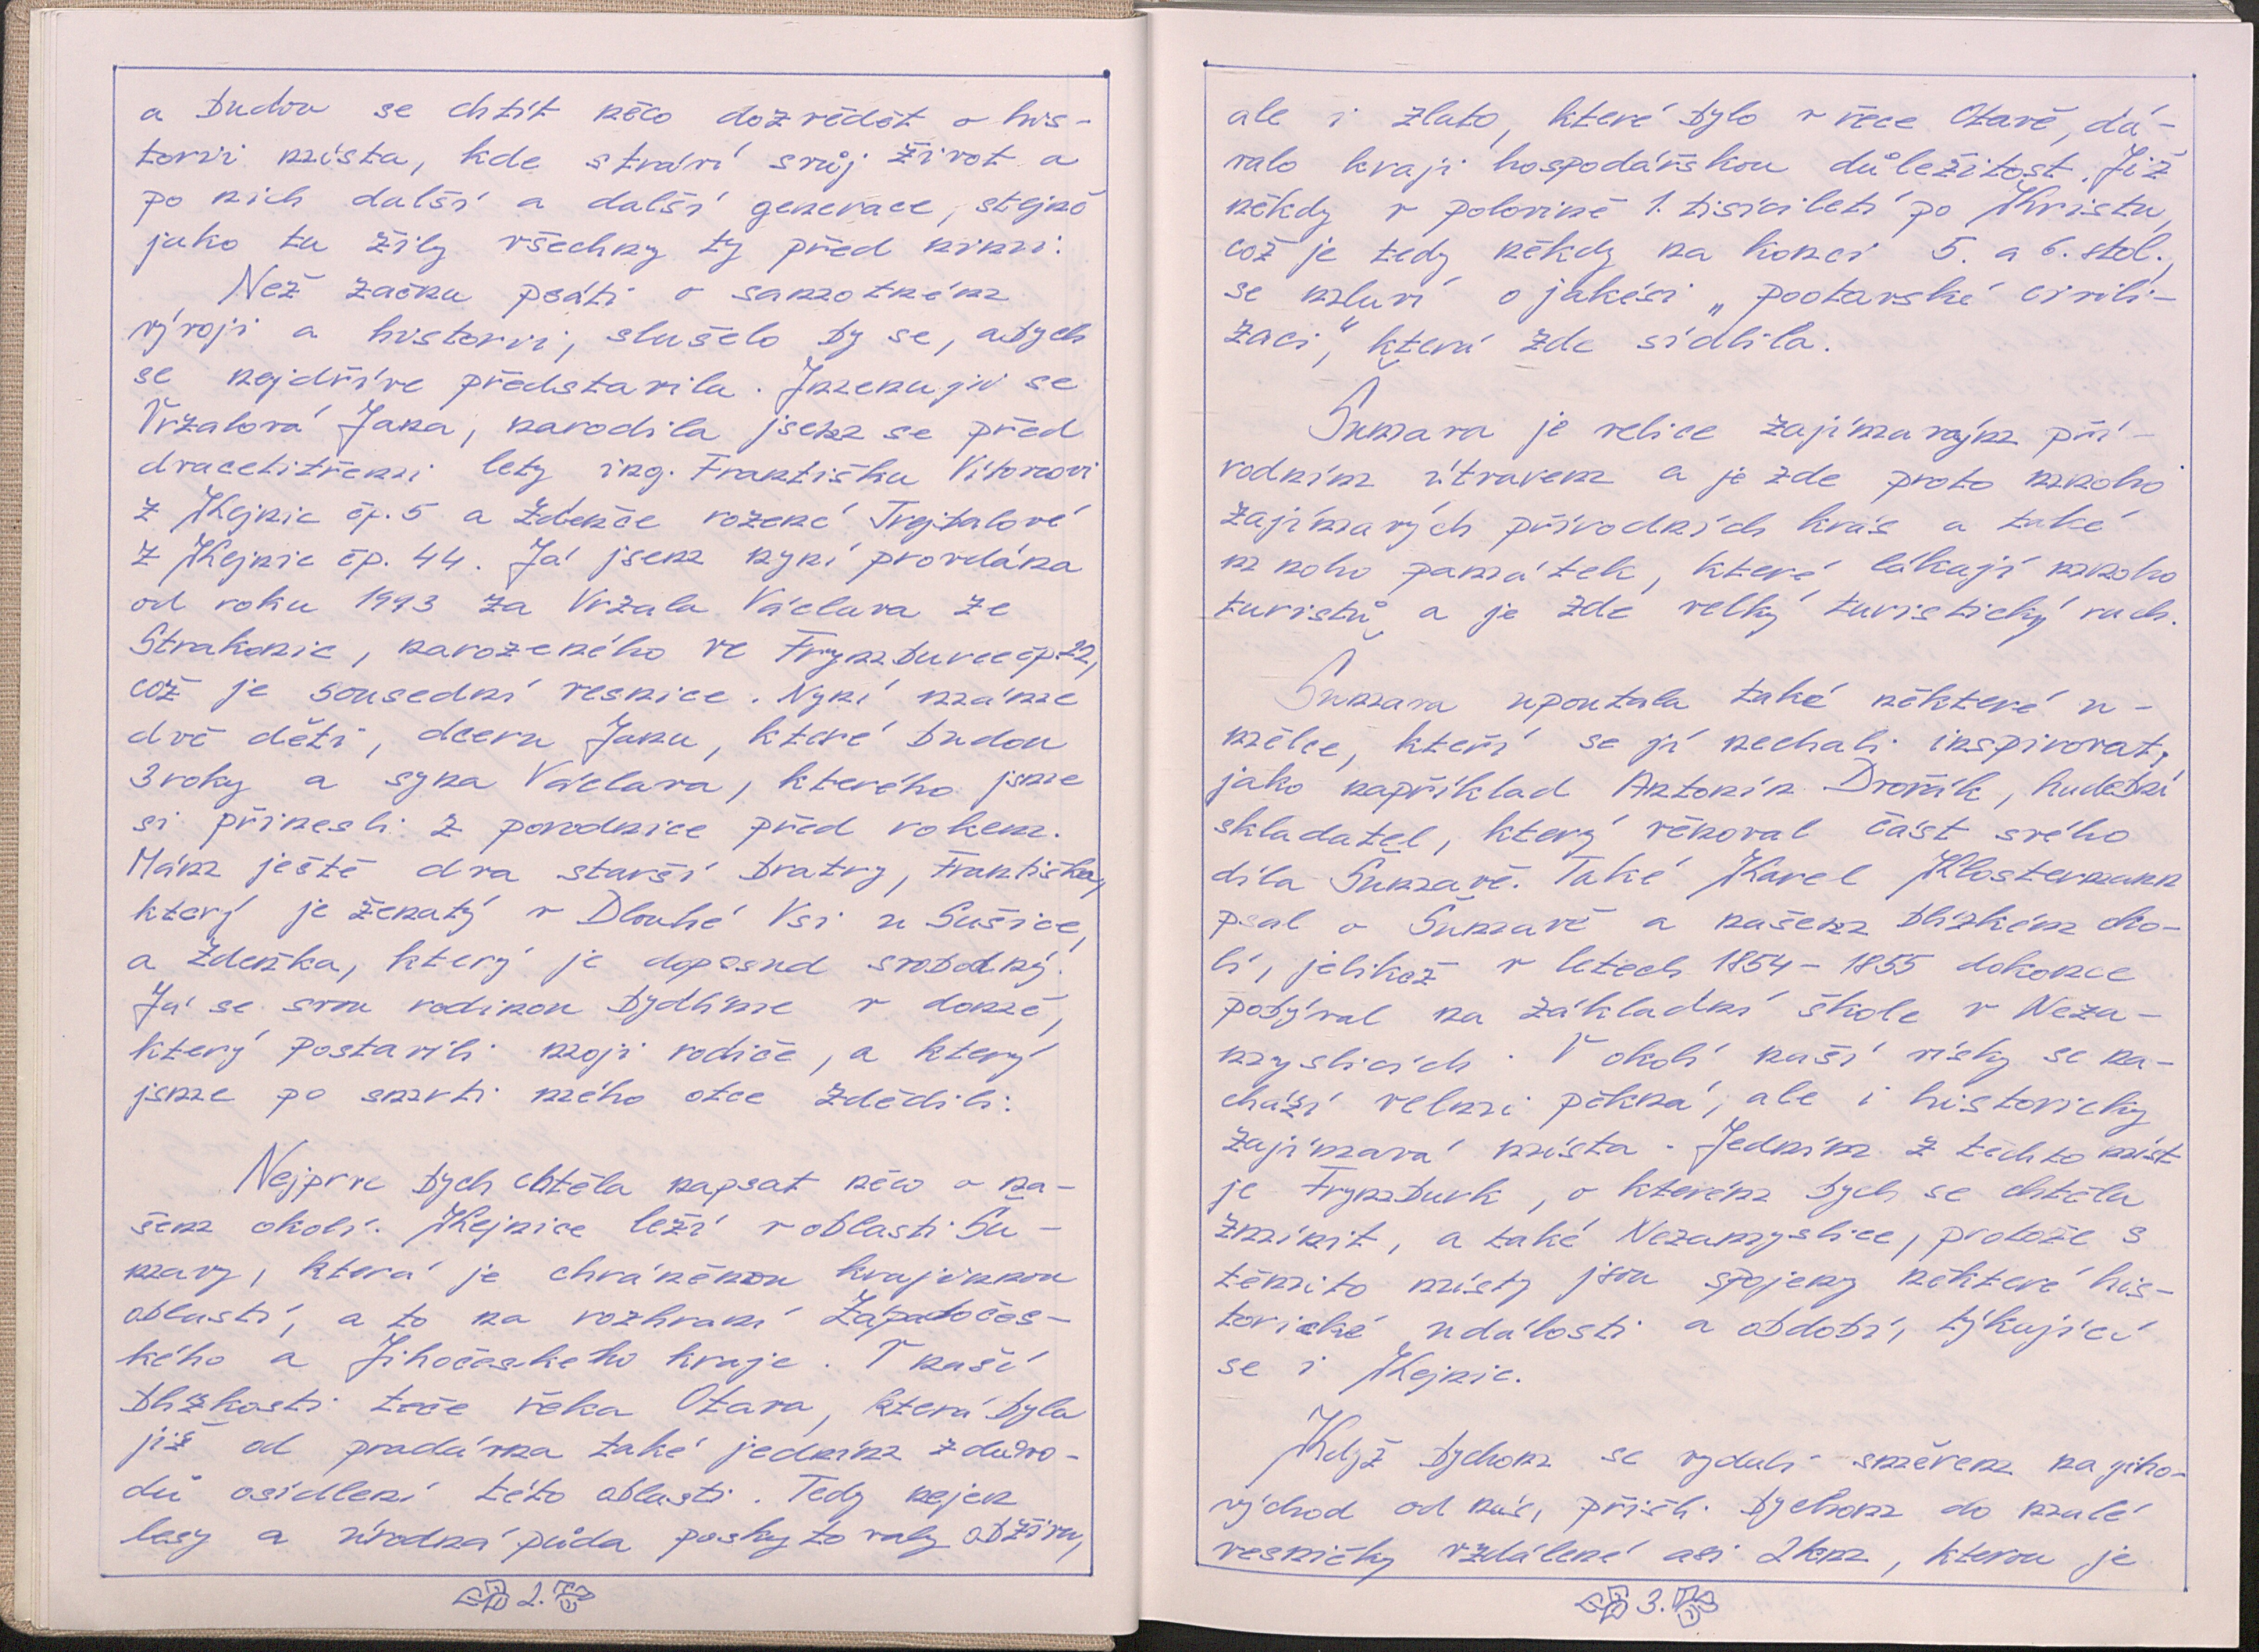 a budou se chtít něco dozvědět o his-
torii místa, kde stráví svůj život a
po nich další a další generace, stejně
jako tu žily všechny ty před nimi.
Než začnu psáti o samotném
vývoji a historii, slušelo by se, abych
se nejdříve představila. Jmenuji se
Vržalová Jana, narodila jsem se před
dvacetitřemi lety ing. Františku Vítovcovi
z Kejnic čp. 5 a Zdeňce rozené Trejtalové
z Kejnic čp. 44. Já jsem nyní provdána
od roku 1993 za Vržala Václava ze
Strakonic, narozeného ve Frymburce čp. 22,
což je sousední vesnice. Nyní máme
dvě děti, dceru Janu, které budou
3 roky a syna Václava, kterého jsme
si přinesli z porodnice před rokem.
Mám ještě dva starší bratry, Františka,
který je ženatý v Dlouhé Vsi u Sušice,
a Zdeňka, který je doposud svobodný.
Já se svou rodinou bydlíme v domě,
který postavili moji rodiče, a který
jsme po smrti mého otce zdědili.
Nejprve bych chtěla napsat něco o na-
šem okolí. Kejnice leží v oblasti Šu-
mavy, která je chráněnou krajinnou
oblastí, a to na rozhraní Západočes-
kého a Jihočeského kraje. V naší
blízkosti teče řeka Otava, která byla
již od pradávna také jedním z důvo-
dů osídlení této oblasti. Tedy nejen
lesy a úrodná půda poskytovaly obživu,
2.
ale i zlato, které bylo v řece Otavě, dá-
valo kraji hospodářskou důležitost. Již
někdy v polovině 1. tisíciletí po Kristu,
což je tedy někdy na konci 5. a 6. stol.,
se mluví o jakési „pootavské civili-
zaci," která zde sídlila.
Šumava je velice zajímavým pří-
rodním útvarem a je zde proto mnoho
zajímavých přírodních krás a také
mnoho památek, které lákají mnoho
turistů a je zde velký turistický ruch.
Šumava upoutala také některé u-
mělce, kteří se jí nechali inspirovat,
jako například Antonín Dvořák, hudební
skladatel, který věnoval část svého
díla Šumavě. Také Karel Klostermann
psal o Šumavě a našem blízkém oko-
lí, jelikož v letech 1854 - 1855 dokonce
pobýval na základní škole v Neza-
myslicích. V okolí naší vísky se na-
chází velmi pěkná, ale i historicky
zajímavá místa. Jedním z těchto míst
je Frymburk, o kterém bych se chtěla
zmínit, a také Nezamyslice, protože s
těmito místy jsou spojeny některé his-
torické události a období, týkající
se i Kejnic.
Když bychom se vydali směrem na jiho-
východ od nás, přišli bychom do malé
vesničky vzdálené asi 2km, kterou je
3.